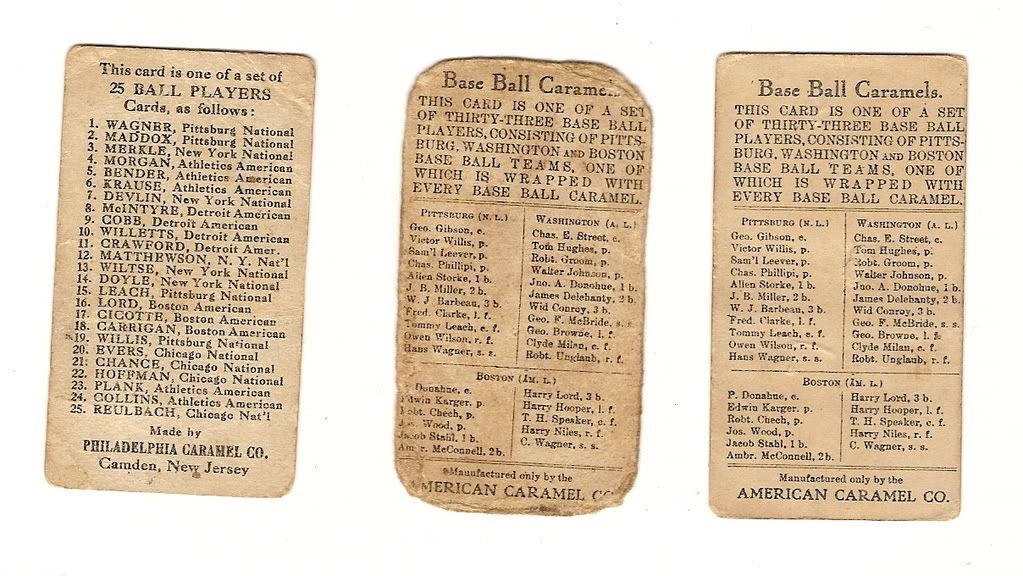 This card is one of a set of
25 BALL PLAYERS
Cards, as follows:
1. WAGNER, Pittsburg National
2. MADDOX, Pittsburg National
3. MERKLE, New York National
4. MORGAN, Athletics American
5. BENDER, Athletics American
6. KRAUSE, Athletics American
7. DEVLIN, New York National
8. McINTYRE, Detroit American
9. COBB, Detroit American
10. WILLETTS, Detroit American
11. CRAWFORD, Detroit Amer.
12. MATTHEWSON, N. Y. Nat'l
13. WILTSE, New York National
14. DOYLE, New York National
15. LEACH, Pittsburg National
16. LORD, Boston American
17. CICOTTE, Boston American
18. CARRIGAN, Boston American
19. WILLIS, Pittsburg National
20. EVERS, Chicago National
21. CHANCE, Chicago National
22. HOFFMAN, Chicago National
23. PLANK, Athletics American
24. COLLINS, Athletics American
25. REULBACH, Chicago Nat'l
Made by
PHILADELPHIA CARAMEL CO.
Camden, New Jersey
Base Ball Carame
THIS CARD IS ONE OF A SET
OF THIRTY-THREE BASE BALL
PLAYERS, CONSISTING OF PITTS-
BURG, WASHINGTON AND BOSTON
BASE BALL TEAMS, ONE OF
WHICH IS WRAPPED WITH
EVERY BASE BALL CARAMEL.
PITTSBURG (N. L.)
Geo. Gibson, c.
Victor Willis, p.
Sam'l Leever, p.
Chas. Phillipi, p.
Allen Storke, 1 b.
J. B. Miller, 2 b.
W. J. Barbeau, 3 b.
Fred. Clarke, l. f.
Tommy Leach, c. f.
Owen Wilson, r. f.
Hans Wagner, s. s.
WASHINGTON (A. L.)
Chas. E. Street, c.
Tom Hughes, p.
Robt. Groom, p.
Walter Johnson, p.
Jno. A. Donohue, 1 b.
James Delehanty, 2 b.
Wid Conroy, 3 b.
Geo. F. McBride, s. s.
Geo. Browne, l. f.
Clyde Milan, c. f.
Robt. Unglaub, r. f.
BOSTON (AM. L.)
Donahue, c.
Edwin Karger. p.
obt. Chech, p.
s. Wood, p.
Jacob Stahl, 1 b.
Ambr. McConnell, 2 b.
Harry Lord, 3 b.
Harry Hooper, l. f.
T. H. Speaker, c. f.
Harry Niles, r. f.
C. Wagner, s. s.
Manufactured only by the
AMERICAN CARAMEL CO
Base Ball Caramels.
THIS CARD IS ONE OF A SET
OF THIRTY-THREE BASE BALL
PLAYERS, CONSISTING OF PITTS-
BURG, WASHINGTON AND BOSTON
BASE BALL TEAMS, ONE OF
WHICH IS WRAPPED WITH
EVERY BASE BALL CARAMEL.
PITTSBURG (N. L.)
Geo. Gibson, c.
Victor Willis, p.
Sam'l Leever, p.
Chas. Phillipi, p.
Allen Storke, 1 b.
J. B. Miller, 2 b.
W. J. Barbeau, 3 b.
Fred. Clarke, l. f.
Tommy Leach, c. f.
Owen Wilson, r. f.
Hans Wagner, s. s.
WASHINGTON (A. L.)
Chas. E. Street, c.
Tom Hughes, p.
Robt. Groom, p.
Walter Johnson, p.
Jno. A. Donohue, 1 b.
James Delehanty, 2 b.
Wid Conroy, 3 b.
Geo. F. McBride, s. s.
Geo. Browne, l. f.
Clyde Milan, c. f.
Robt. Unglaub, r. f.
BOSTON (AM. L.)
P. Donahue, c.
Edwin Karger. p.
Robt. Chech, p.
Jos. Wood, p.
Jacob Stahl, 1 b.
Ambr. McConnell, 2 b.
Harry Lord, 3 b.
Harry Hooper, l. f.
T. H. Speaker, c. f.
Harry Niles, r. f.
C. Wagner, s. s.
Manufactured only by the
AMERICAN CARAMEL CO.